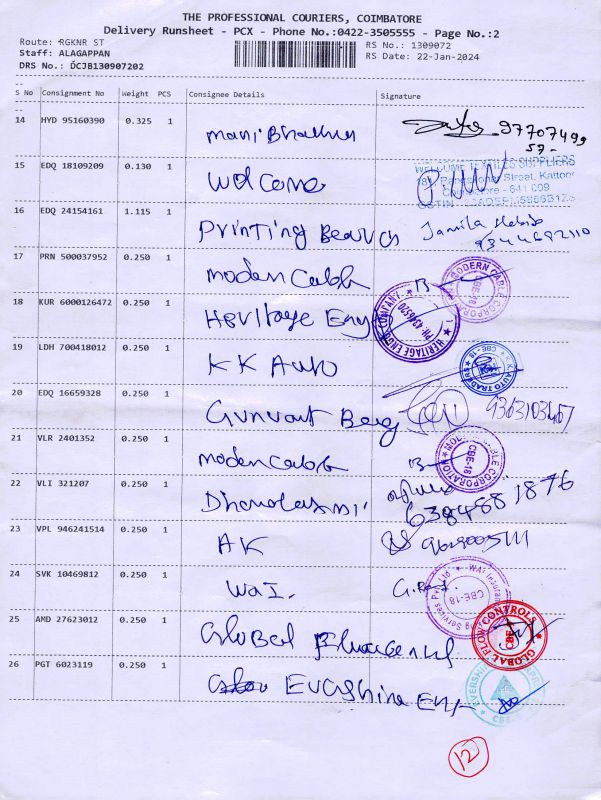 THE PROFESSIONAL COURIERS, COIMBATORE
Delivery Runsheet - PCX - Phone No.:0422-3505555 - Page No.:2
Route: RGKNR ST RS No.: 1309072
Staff: ALAGAPPAN RS Date: 22-Jan-2024
DRS No.: DCJB130907202
S No Consignment No Weight PCS Consignee Details Signature
14 HYD 95160390 0.325 1
97707499
57-
15 EDQ 18109209 0.130 1 Welcome
WELCOME TEXTILES SUPPLIERS
Street, Kattoor
Coimbatore - 641 009
16 EDQ 24154161 1.115 1 Printing Jamila
9344682110
17 PRN 500037952 0.250 1 Moden Cable
MODERN CABLE CORPORATION
CBE-18
18 KUR 6000126472 0.250 1 Heritage Eng
HERITAGE ENGG COMPANY
19 LDH 700418012 0.250 1 KK Auto
K.K. AUTO TRADERS
CBE-18
20 EDQ 16659328 0.250 1 Gunvant Beng
21 VLR 2401352 0.250 1 Moden Cable
MODERN CABLE CORPORATION
CBE-18
22 VLI 321207 0.250 1 Dhanalaxmi
6384881876
23 VPL 946241514 0.250 1 AK
24 SVK 10469812 0.250 1 WAI.
CBE-18
25 AMD 27623012 0.250 1 Global
GLOBAL FLOW CONTROLS
CBE
26 PGT 6023119 0.250 1 Evershine En/-
CBE
12